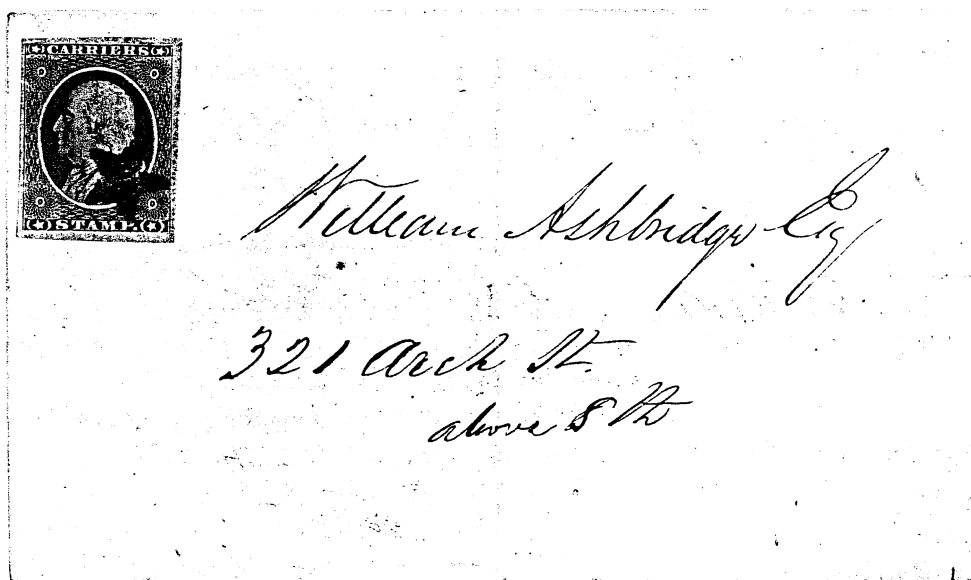 CARRIERS
STAMP.
William Ashbridge Esq
321 Arch St.
above 8th